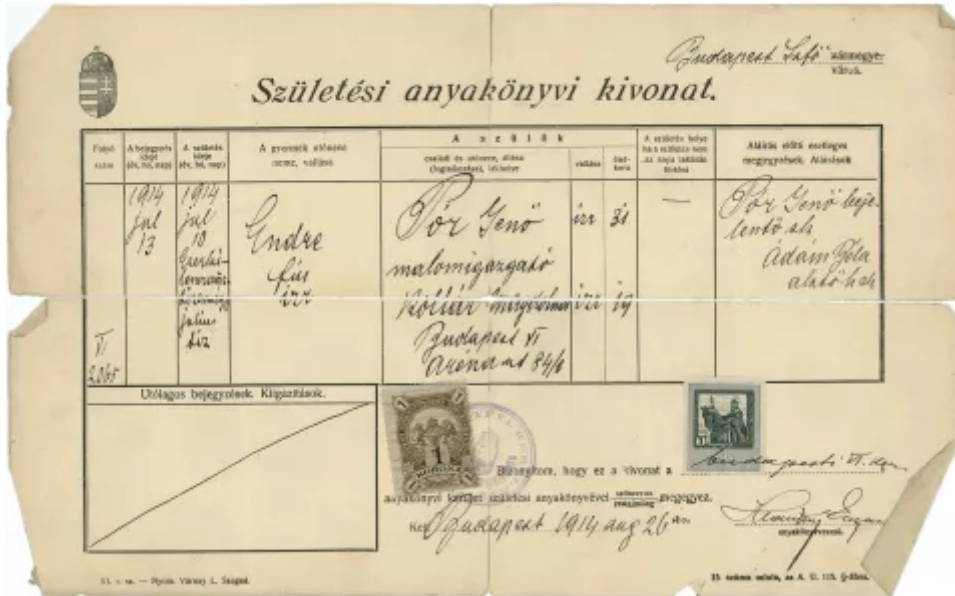 Budapest Sző vármegye
város.
Születési anyakönyvi kivonat.
Folyó
szám
A bejegyzés
ideje
(év, hó, nap)
A születés
ideje
(év, hó, nap)
A gyermek utóneve
neme, vallása
A szülők
családi és utóneve, állása
(foglalkozása), lakhelye
vallása
élet-
kora
A születés helye
ha a születés nem
az anya lakásán
történt
Aláírás előtti esetleges
megjegyzések. Aláírások
VI
2065
1914
jul
13
1914
jul
10
július
tíz
Endre
fiú
izr
Pór Jenő
malomigazgató
izr 31
Kollár
izr 19
Budapest VI
Aréna út 84/b
—
Pór Jenő beje-
lentő sk
Ádám Béla
Utólagos bejegyzések. Kiigazítások.
1
1
1
KORONA
Bizonyítom, hogy ez a kivonat a budapesti VI. ker.
anyakönyvi kerület születési anyakönyvével megegyez.
Kelt Budapest 1914 aug 26
anyakönyvvezető.
Nyom. Várnay L. Szeged.
25. számú minta, az A. U. 115. §-ához.